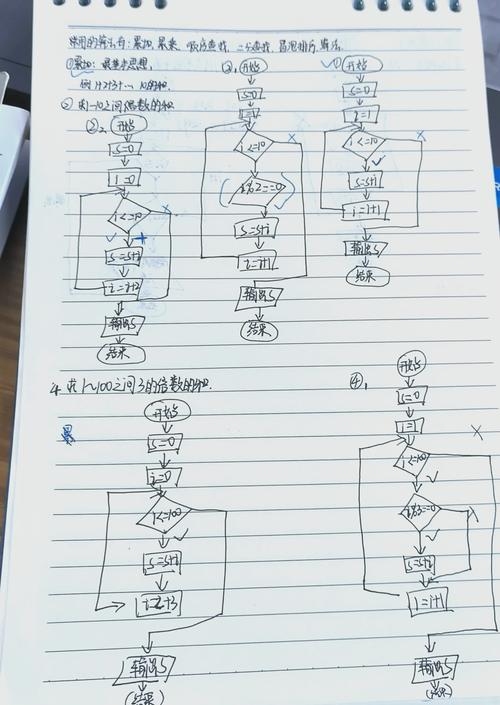 常用的算法有：累加, 累乘, 顺序查找, 二分查找, 冒泡排序算法.
①累加: 最基本思想.
例 1+2+3+… 10的和.
② 求1~10之间偶数的和
②2、 开始
s=0
i=0
i<=10
s=s+i
i=i+2
输出s
结束
②, 开始
s=0
i=1
i<=10
i%2==0
s=s+i
i=i+1
输出s
结束
① 开始
s=0
i=1
i<=10
s=s+i
i=i+1
输出s
结束
4. 求1~100之间3的倍数的和.
累
开始
s=0
i=0
i<=100
s=s+i
i=i+3
输出s
结束
④,
开始
s=0
i=1
i<=100
i%3==0
s=s+i
i=i+1
输出s
结束